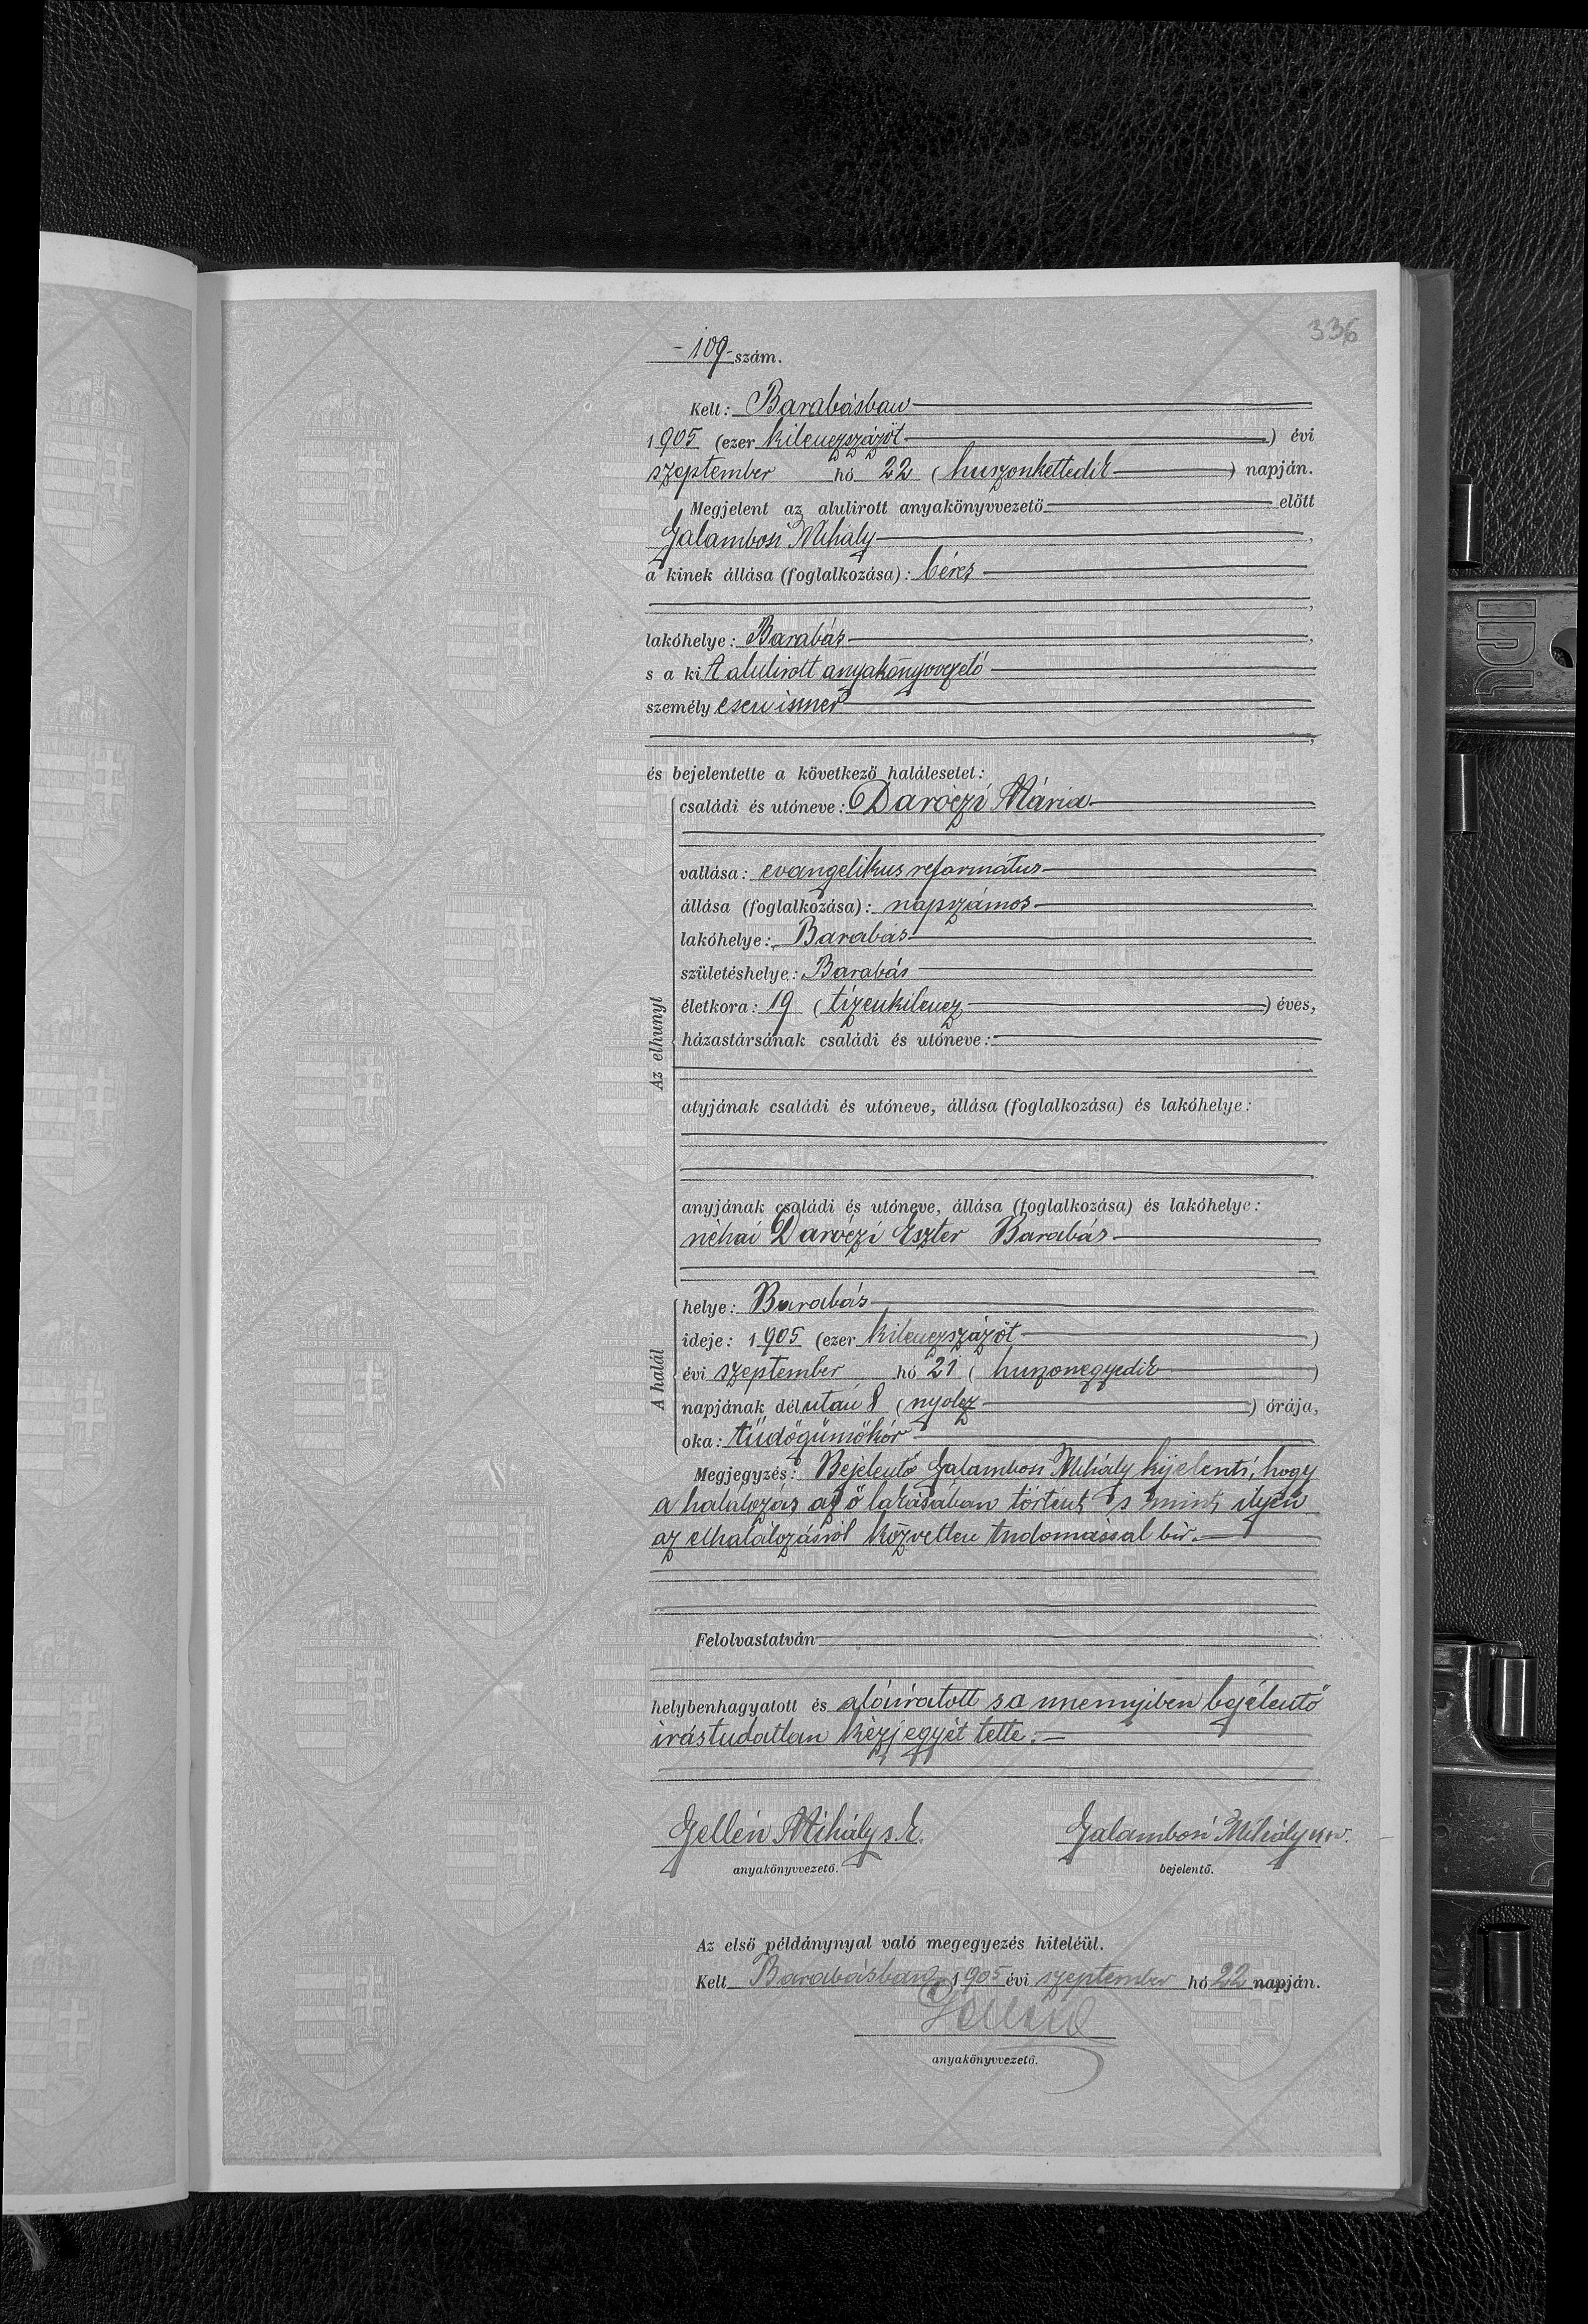 336
-109- szám.
Kelt: Barabásban
1905 (ezer kilenczszázöt) évi
szeptember hó 22 (huszonkettedik) napján.
Megjelent az alulirott anyakönyvvezető előtt
Galambosi Mihály,
a kinek állása (foglalkozása): béres
,
lakóhelye: Barabás,
s a kit alulirott anyakönyvvezető
személyesen ismer
,
és bejelentette a következő halálesetet:
Az elhunyt
családi és utóneve: Daróczi Mária
vallása: evangelikus református
állása (foglalkozása): napszámos
lakóhelye: Barabás
születéshelye: Barabás
életkora: 19 (tizenkilencz) éves,
házastársának családi és utóneve:
atyjának családi és utóneve, állása (foglalkozása) és lakóhelye:
anyjának családi és utóneve, állása (foglalkozása) és lakóhelye:
néhai Daróczi Eszter Barabás
A halál
helye: Barabás
ideje: 1905 (ezer kilenczszázöt)
évi szeptember hó 21 (huszonegyedik)
napjának délután 8 (nyolcz) órája,
oka: tüdőgümőkór
Megjegyzés: Bejelentő Galambosi Mihály kijelenti, hogy
a halálozás az ő lakásában történt s mint ilyen
az elhalálozásról közvetlen tudomással bir.
Felolvastatván
helybenhagyatott és alóiratott s a mennyiben bejelentő
irástudatlan kézjegyét tette.
Gellén Mihály s.k. Galambosi Mihály
anyakönyvvezető. bejelentő.
Az első példánynyal való megegyezés hiteléül.
Kelt Barabásban, 1905 évi szeptember hó 22 napján.
Gellén
anyakönyvvezető.